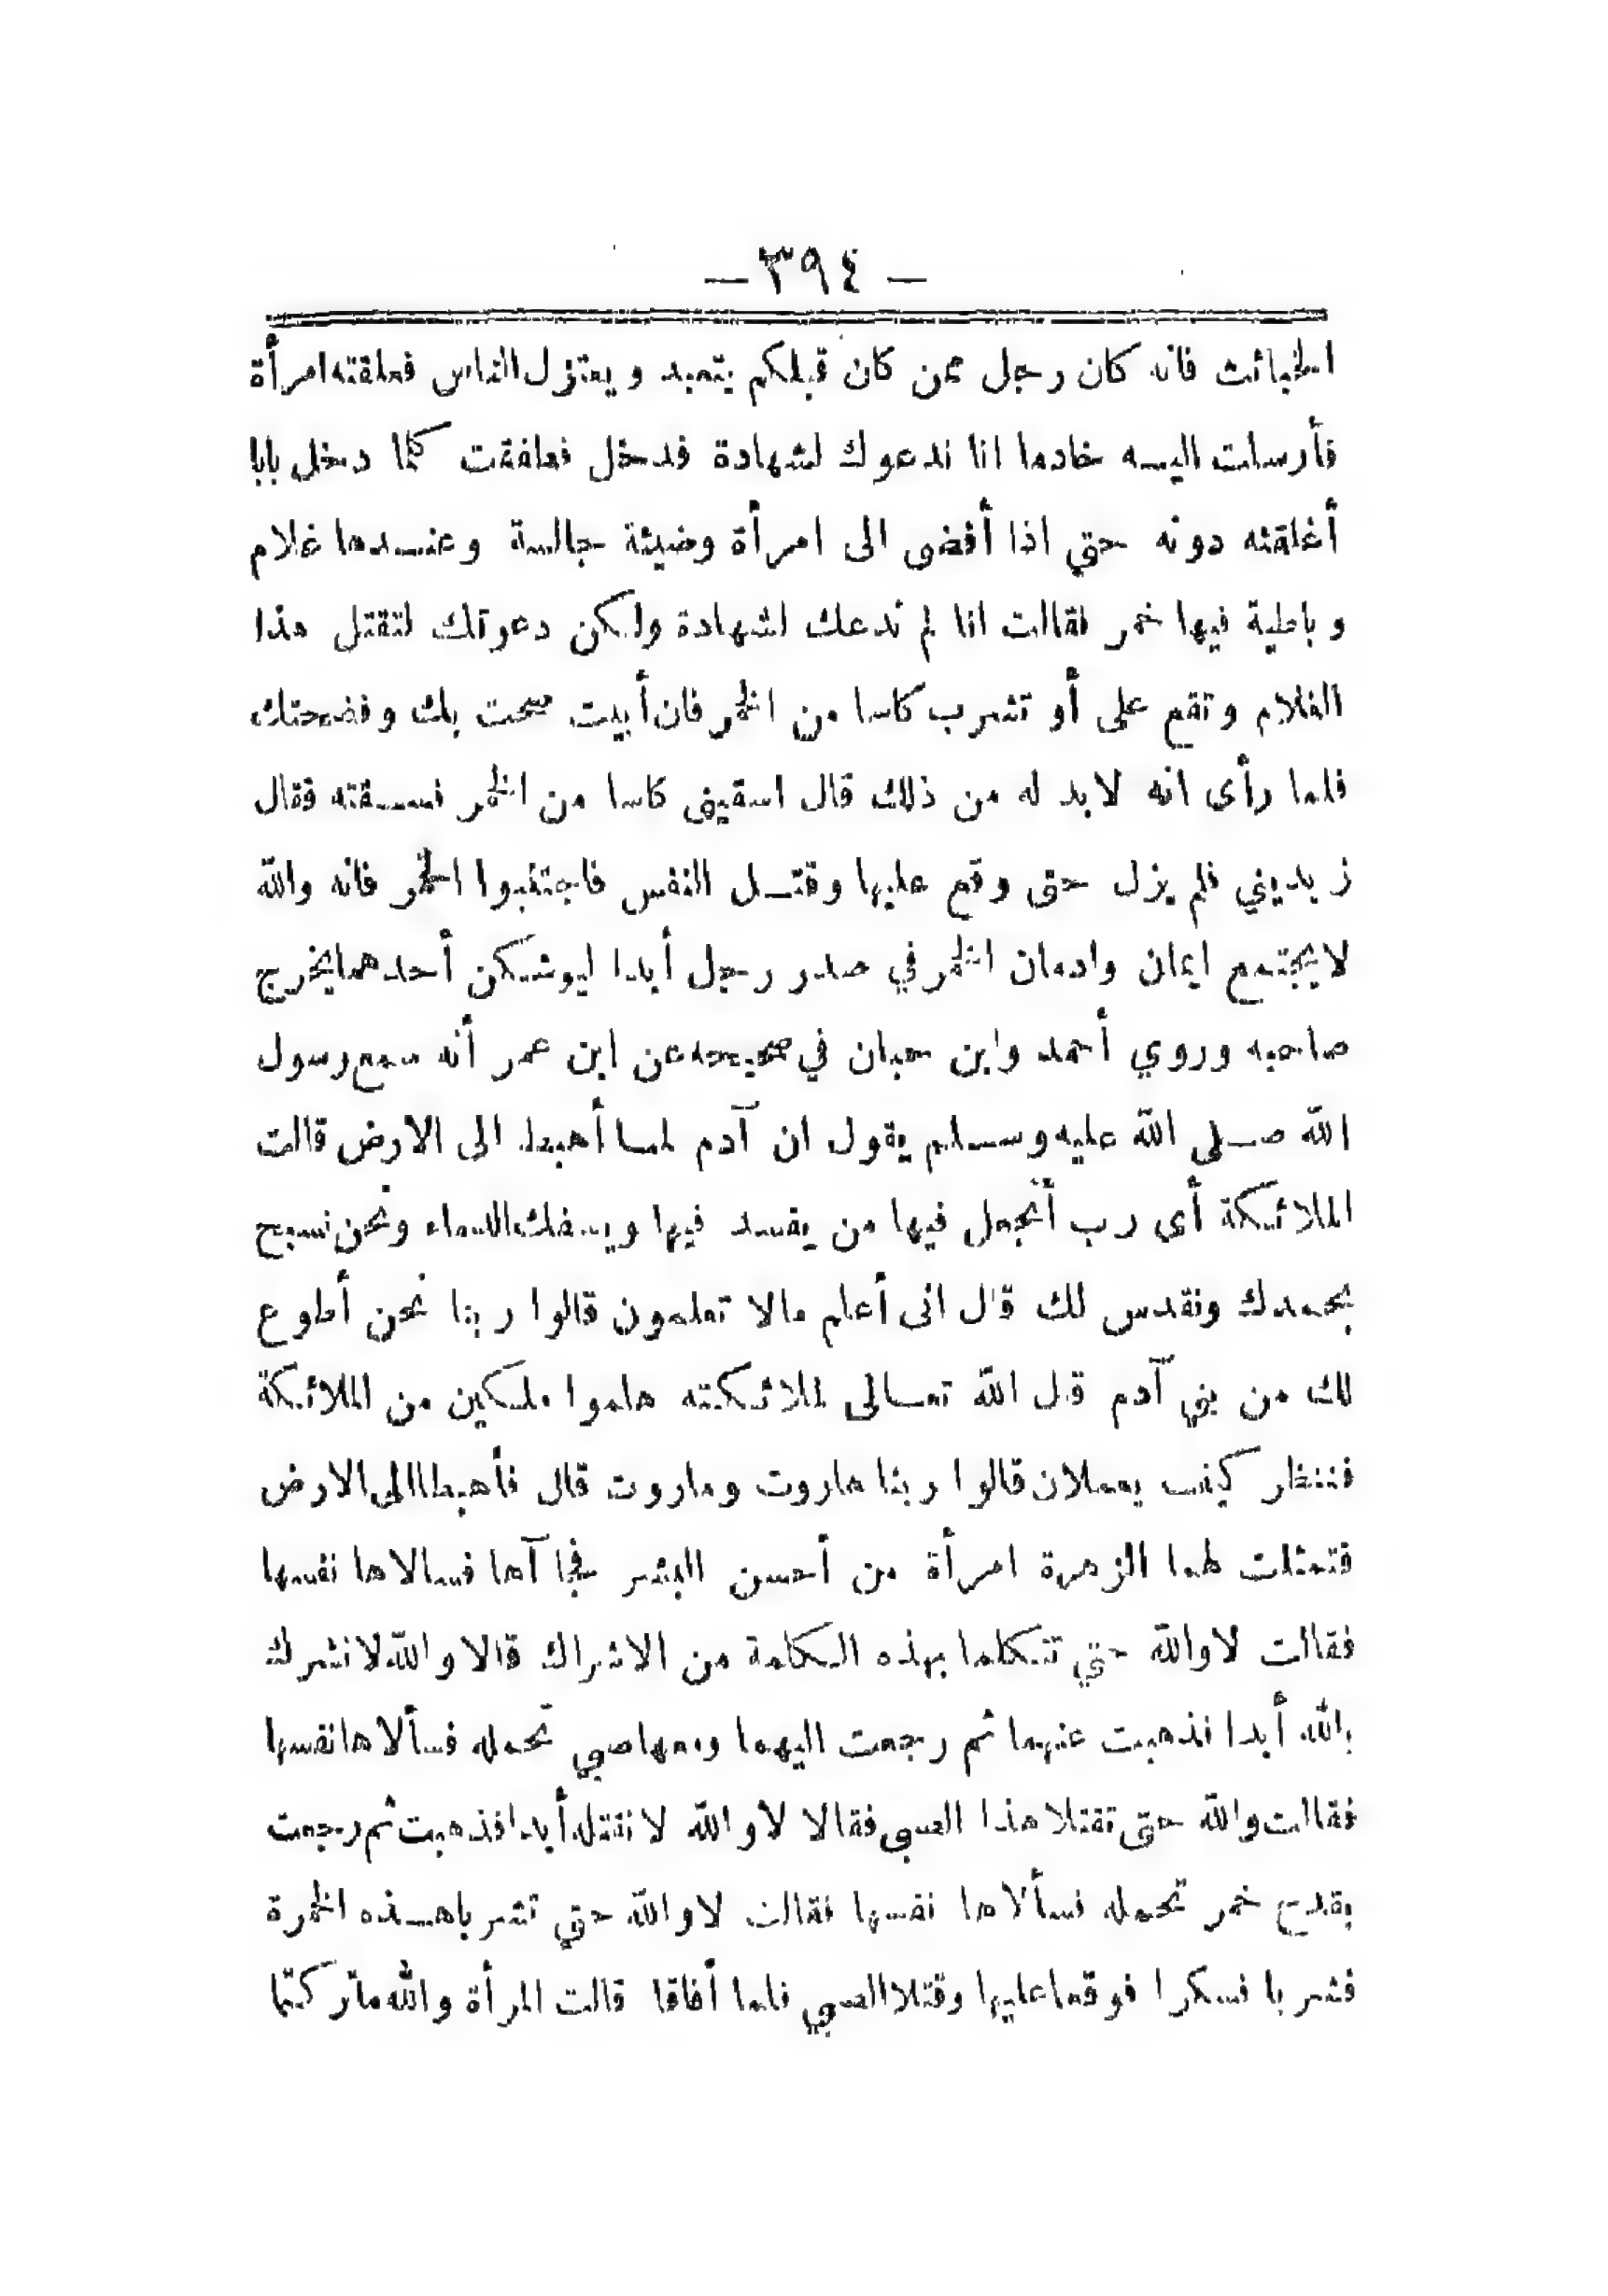 — ٣٩٤ —
الخبائث فانه كان رجل ممن كان قبلكم يتعبد ويعتزل الناس فعلقته امرأة
فأرسلت اليه خادما انا ندعوك لشهادة فدخل فطفقت كلما دخل بابا
أغلقته دونه حتي اذا أفضى الى امرأة وضيئة جالسة وعندها غلام
وباطية فيها خمر فقالت انا لم ندعك لشهادة ولكن دعوتك لتقتل هذا
الغلام وتقع على أو تشرب كاسا من الخمر فان أبيت صحت بك وفضحتك
فلما رأى انه لابد له من ذلك قال اسقيني كاسا من الخمر فسقته فقال
زيديني فلم يزل حتى وقع عليها وقتل النفس فاجتنبوا الخمر فانه والله
لا يجتمع ايمان وادمان الخمر في صدر رجل أبدا ليوشكن أحدهما يخرج
صاحبه وروي أحمد وابن حبان في صحيحه عن ابن عمر أنه سمع رسول
الله صلى الله عليه وسلم يقول ان آدم لما أهبط الى الارض قالت
الملائكة أى رب أتجعل فيها من يفسد فيها ويسفك الدماء ونحن نسبح
بحمدك ونقدس لك قال انى أعلم مالا تعلمون قالوا ربنا نحن أطوع
لك من بني آدم قال الله تعالى لملائكته هلموا ملكين من الملائكة
فننظر كيف يعملان قالوا ربنا هاروت وماروت قال فأهبطا الى الارض
فتمثلت لهما الزهرة امرأة من أحسن البشر فجا آها فسالاها نفسها
فقالت لا والله حتي تتكلما بهذه الكلمة من الاشراك قالا والله لا نشرك
بالله أبدا فذهبت عنهما ثم رجعت اليهما ومعها صبي تحمله فسألاها نفسها
فقالت والله حتى تقتلا هذا الصبى فقالا لا والله لا نقتله أبدا فذهبت ثم رجعت
بقدح خمر تحمله فسألاها نفسها فقالت لا والله حتي تشربا هذه الخمرة
فشربا فسكرا فوقعا عليها وقتلا الصبي فلما أفاقا قالت المرأة والله ما تركتما